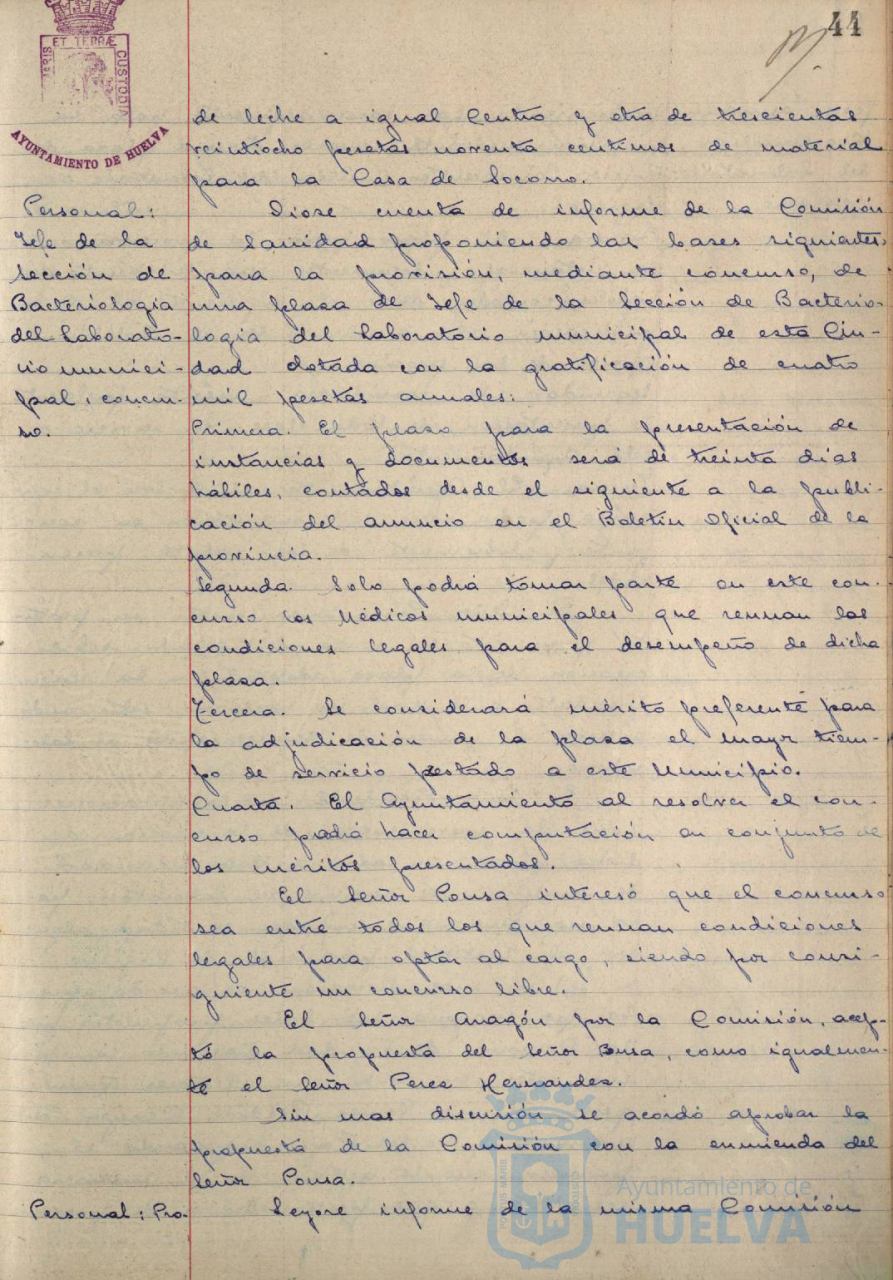 44
ET TERRÆ
CUSTODIA
AYUNTAMIENTO DE HUELVA
de leche a igual Centro y otra de trescientas
veintiocho pesetas noventa centimos de material
para la Casa de Socorro.
Personal:
Jefe de la
Sección de
Bacteriologia
del Laborato-
rio munici-
pal, concur-
so.
Diose cuenta de informe de la Comisión
de Sanidad proponiendo las bases siguientes
para la provisión, mediante concurso, de
una plaza de Jefe de la Sección de Bacterio-
logia del Laboratorio municipal de esta Ciu-
dad dotada con la gratificación de cuatro
mil pesetas anuales:
Primera. El plazo para la presentación de
instancias y documentos será de treinta dias
hábiles, contados desde el siguiente a la publi-
cación del anuncio en el Boletin Oficial de la
provincia.
Segunda. Solo podrá tomar parte en este con-
curso los Médicos municipales que reunan las
condiciones legales para el desempeño de dicha
plaza.
Tercera. Se considerará mérito preferente para
la adjudicación de la plaza el mayor tiem-
po de servicio prestado a este Municipio.
Cuarta. El Ayuntamiento al resolver el con-
curso podrá hacer computación en conjunto de
los méritos presentados.
El Señor Ponsa interesó que el concurso
sea entre todos los que reunan condiciones
legales para optar al cargo, siendo por consi-
guiente un concurso libre.
El Señor Aragón por la Comisión, acep-
tó la propuesta del Señor Ponsa, como igualmen-
te el Señor Perez Hernandez.
Sin mas discusión se acordó aprobar la
propuesta de la Comisión con la enmienda del
Señor Ponsa.
Personal: Pro-
Leyose informe de la misma Comisión
Ayuntamiento de
HUELVA